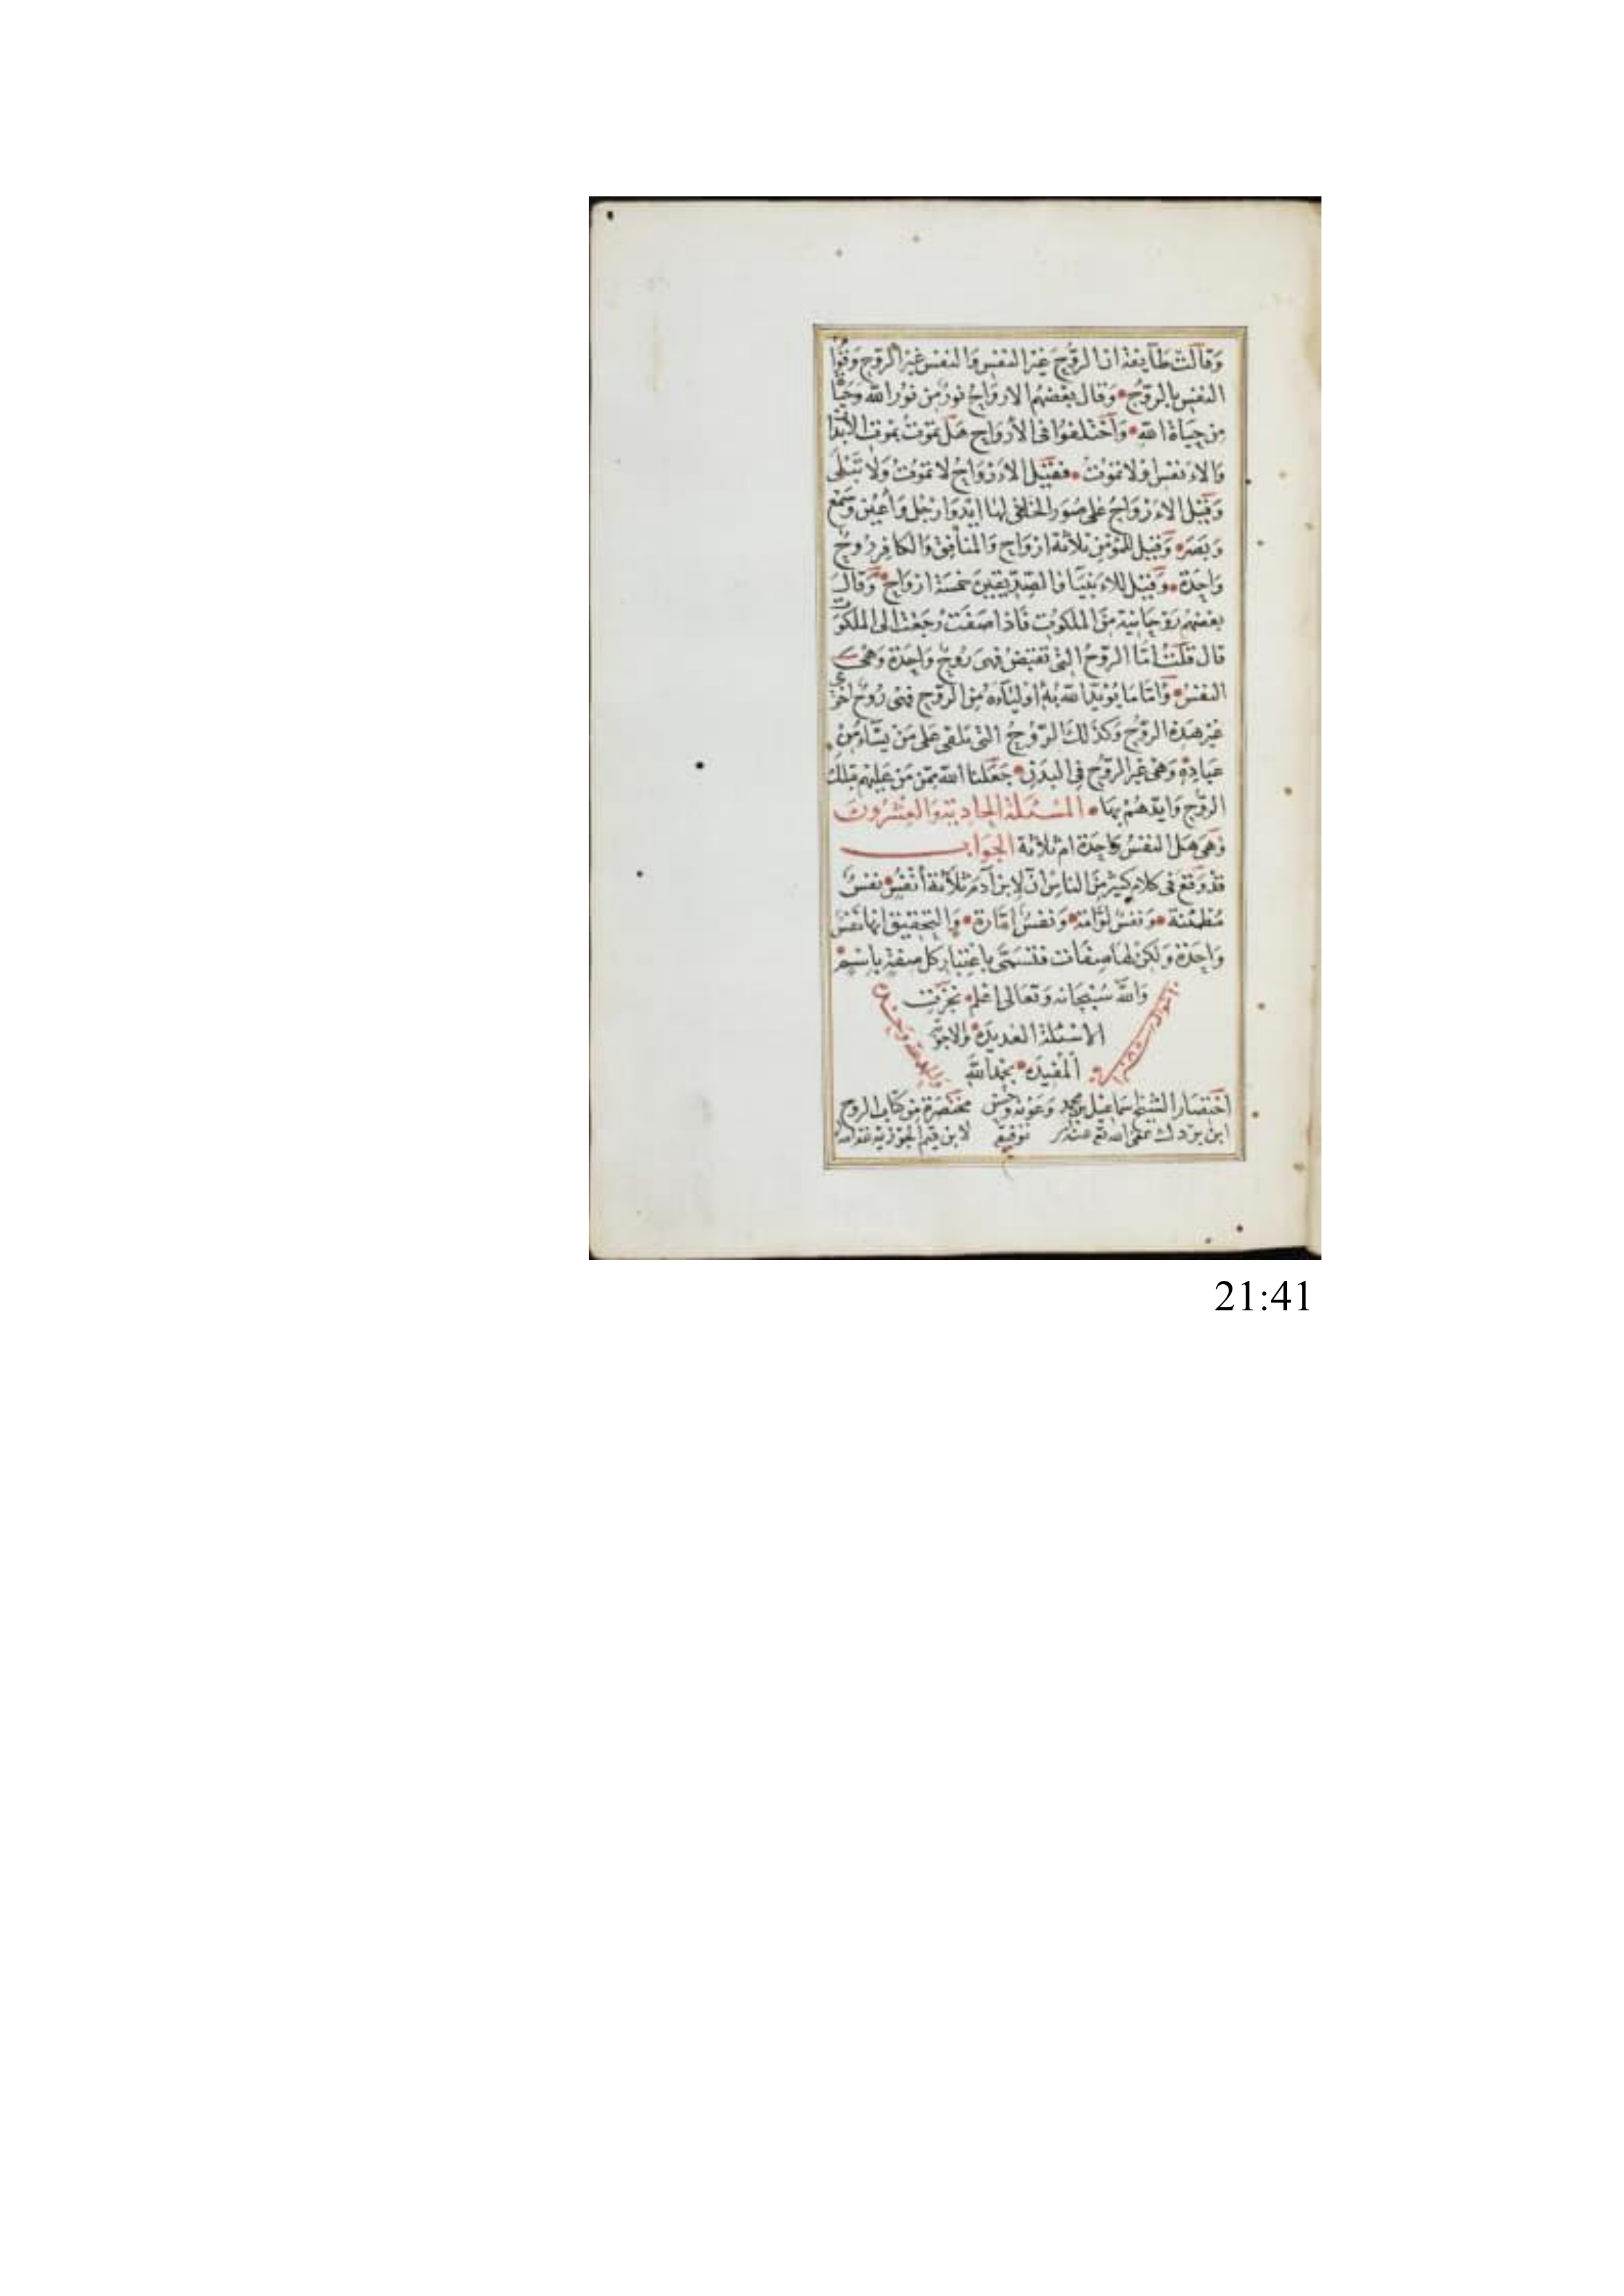 وَقالت طآيفة ان الرّوح غير النفس وَالنفس غير الروح وَقوَام
النفس بالروح • وَقال بعضهم الارواح نور من نور الله وحيَاة
من حيَاة الله • وَاختلفوا فى الأرواح هل تموت بموت الابدان
وَالاءنفس اولا تموت • فقيل الاءرواح لا تموت وَلا تبلى
وَقيل الاءرواح على صور الخلق لها ايد وارجل وَأعين وسمع
وبصر • وَقيل للمؤمن ثلاثة ارواح وَالمنافق وَالكافر روح
وَاحدة • وَقيل للاءنبيَآ والصّدّيقين خمسة ارواح • وَقال
بعضهم روحانية من الملكوت فاذا صفت رجعت الى الملكوت
قال قلت امّا الروح التى تقبض فهى روح وَاحدة وَهى
النفس • وَامّا ما يؤيد الله به اوليآءه من الروح فهى روح اخرى
غير هذه الروح وَكذلك الرّوح التى تلقى على من يشآء من
عبَاده وَهى غير الروح فى البدن • جعلنا الله ممّن منّ عليهم بتلك
الروح وَايدهم بها • المسئلة الحادية وَالعشرون
وَهى هل النفس وَاحدة ام ثلاثة الجواب
قد وقع فى كلام كثير من الناس ان لابن آدم ثلاثة أنفس • نفس
مطمئنة • وَنفس لوّامة • وَنفس امّارة • وَالتحقيق انها نفس
وَاحدة وَلكن لها صفات فتسمّى باعتبار كل صفة باسم
وَالله سبحانه وَتعالى اعلم • نجزت
الاسئلة العديدة • والاجوبة
المفيدة • بحمد الله
اختصار الشيخ اسماعيل بن محمد وَعونه وحسن مختصرة من كتاب الروح
ابن بردس عفى الله تع عنه توفيقه لابن قيم الجوزية
21:41